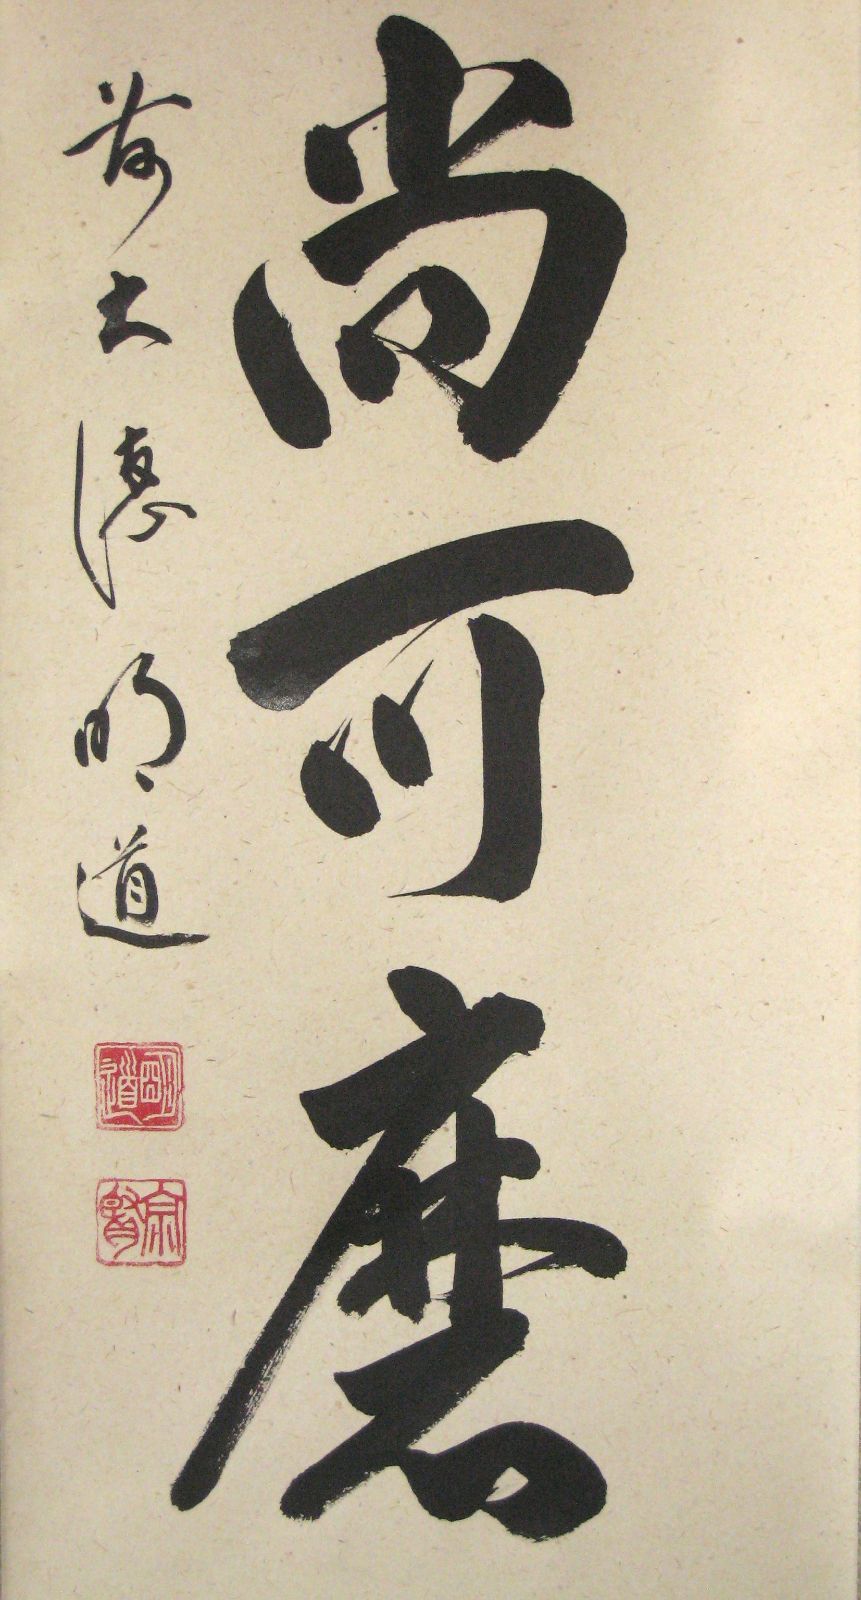 尚可磨
前大徳明道
明道
宗